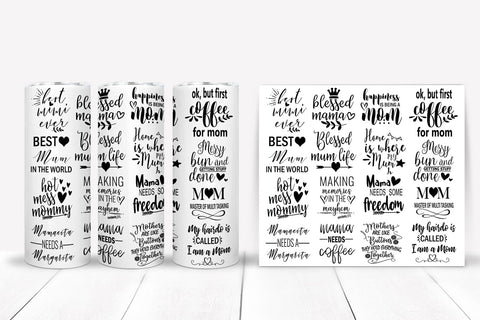 best
mimi
ever
BEST
Mum
IN THE WORLD
hot
mess
mommy
Mamacita
NEEDS A
Margarita
Blessed
mama
Blessed
mum life
MAKING
memories
IN THE
mayhem
MAMA
NEEDS
coffee
happiness
IS BEING A
mom
Home
is where
Mum
Mama
NEEDS SOME
freedom
Mothers
ARE LIKE
Buttons
THEY HOLD EVERYTHING
Together
ok, but first
coffee
for mom
Messy
bun and
GETTING STUFF
done
MOM
MASTER OF MULTITASKING
My hairdo is
CALLED
I am a Mom
best
mimi
ever
BEST
Mum
IN THE WORLD
hot
mess
mommy
Mamacita
NEEDS A
Margarita
Blessed
mama
Blessed
mum life
MAKING
memories
IN THE
mayhem
MAMA
NEEDS
coffee
happiness
IS BEING A
mom
Home
is where
Mum
Mama
NEEDS SOME
freedom
Mothers
ARE LIKE
Buttons
THEY HOLD EVERYTHING
Together
ok, but first
coffee
for mom
Messy
bun and
GETTING STUFF
done
MOM
MASTER OF MULTITASKING
My hairdo is
CALLED
I am a Mom